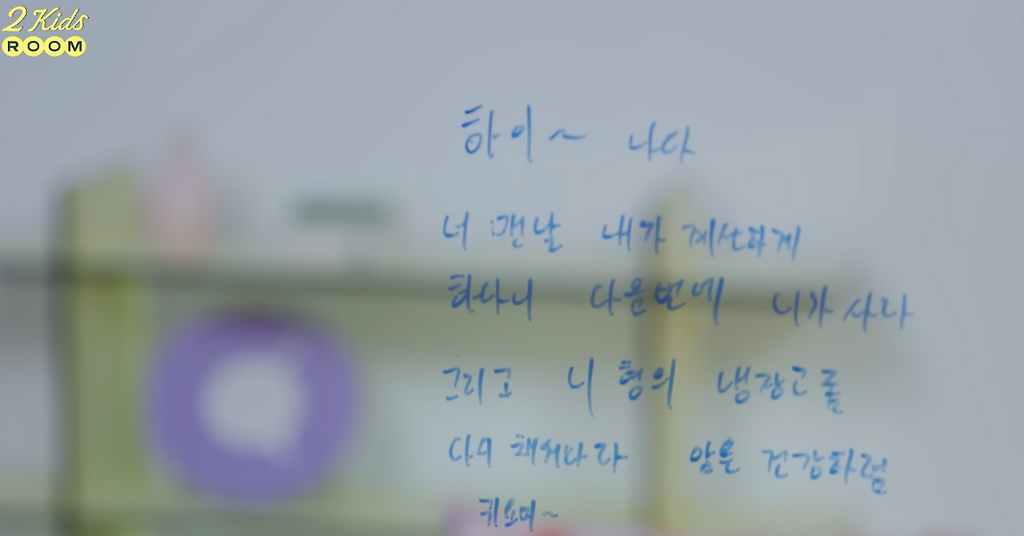 2 Kids
ROOM
하이~ 나다
너 맨날 내가 계산하게
하나니 다음번에 니가 사라
그리고 니 형의 냉장고를
다 채워놔라 암튼 건강하렴
귀요미~